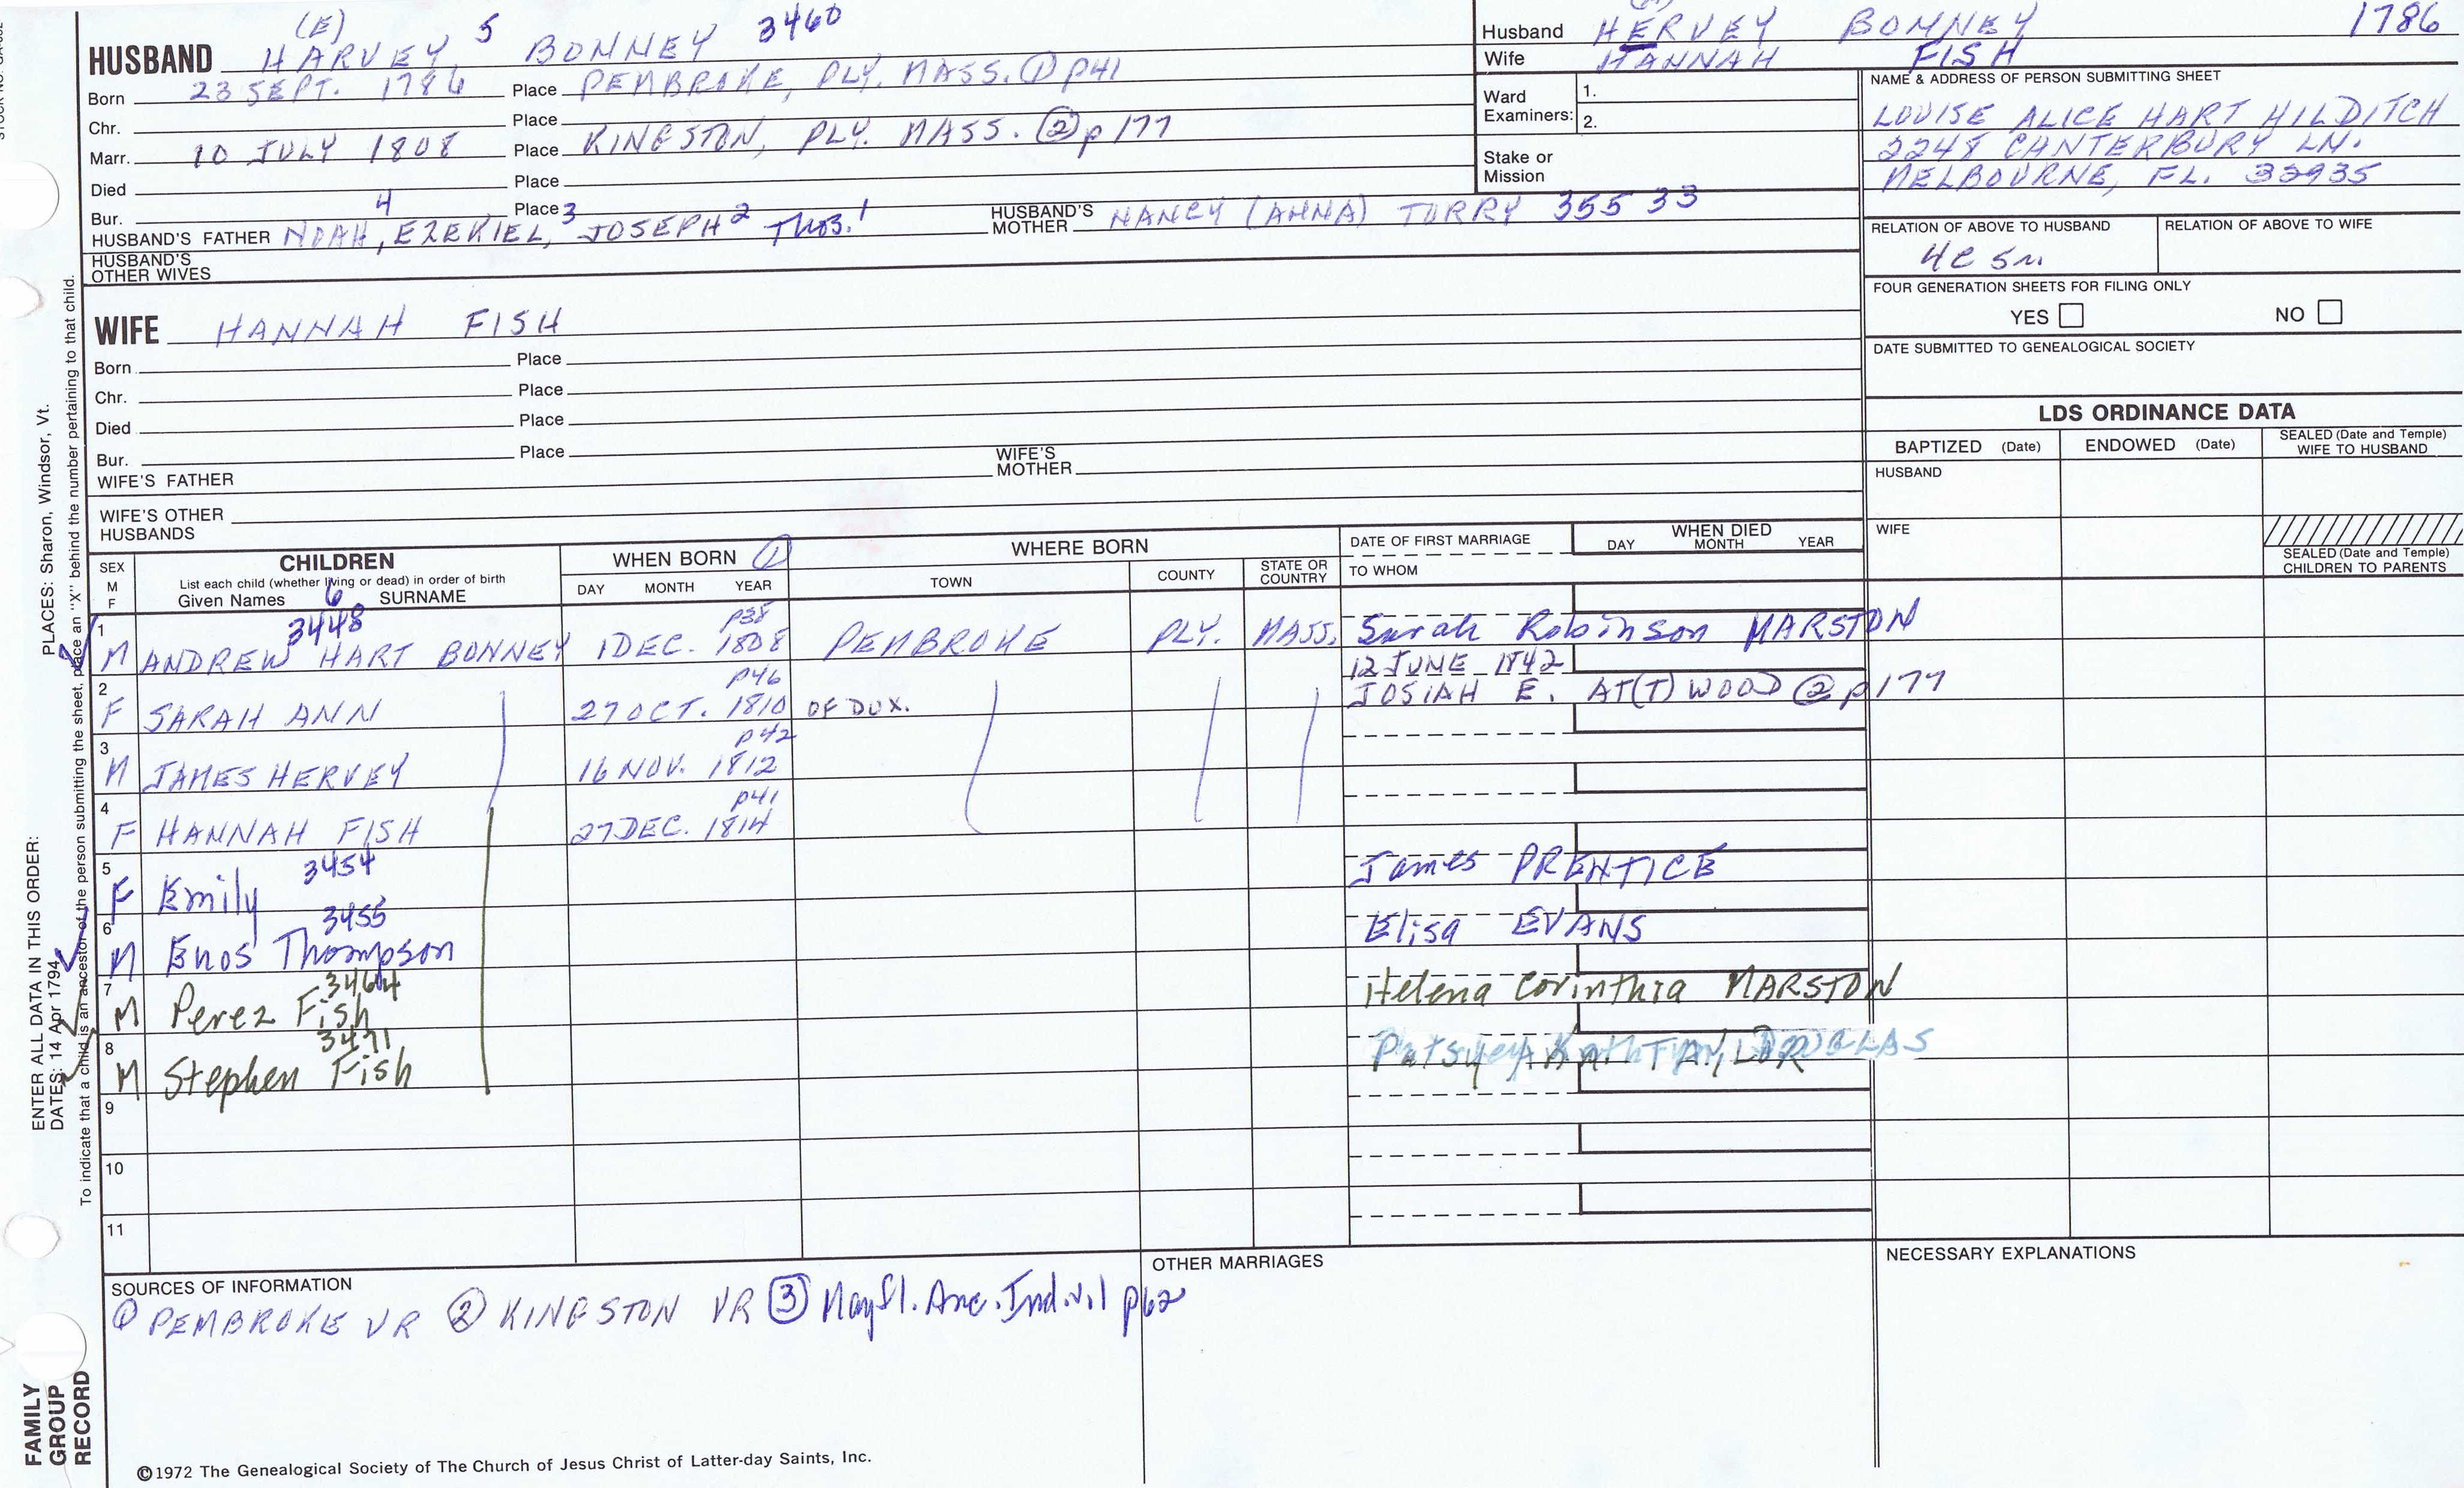 (E)
HUSBAND HARVEY 5 BONNEY 3460
Born 23 SEPT. 1786 Place PEMBROKE, PLY. MASS. ① p41
Chr. Place
Marr. 10 JULY 1808 Place KINGSTON, PLY. MASS. ② p 177
Died Place
Bur. Place
HUSBAND'S FATHER NOAH 4, EZEKIEL, 3 JOSEPH 2 THOS. 1 HUSBAND'S MOTHER NANCY (ANNA) TORRY 355 33
HUSBAND'S OTHER WIVES
Husband HERVEY BONNEY 1786
Wife HANNAH FISH
Ward Examiners: 1.
2.
Stake or Mission
NAME & ADDRESS OF PERSON SUBMITTING SHEET
LOUISE ALICE HART HILDITCH
2248 CANTERBURY LN.
MELBOURNE, FL. 32935
RELATION OF ABOVE TO HUSBAND RELATION OF ABOVE TO WIFE
4C 5r.
FOUR GENERATION SHEETS FOR FILING ONLY
YES NO
DATE SUBMITTED TO GENEALOGICAL SOCIETY
WIFE HANNAH FISH
Born Place
Chr. Place
Died Place
Bur. Place
WIFE'S FATHER WIFE'S MOTHER
WIFE'S OTHER HUSBANDS
LDS ORDINANCE DATA
BAPTIZED (Date) ENDOWED (Date) SEALED (Date and Temple) WIFE TO HUSBAND
HUSBAND
WIFE
SEALED (Date and Temple) CHILDREN TO PARENTS
SEX M F
CHILDREN
List each child (whether living or dead) in order of birth
Given Names 6 SURNAME
WHEN BORN ①
DAY MONTH YEAR
WHERE BORN
TOWN COUNTY STATE OR COUNTRY
DATE OF FIRST MARRIAGE
TO WHOM
WHEN DIED
DAY MONTH YEAR
3448 p38
1 M ANDREW HART BONNEY 1 DEC. 1808 PEMBROKE PLY. MASS. Sarah Robinson MARSTON
p46 12 JUNE 1842
2 F SARAH ANN 27 OCT. 1810 OF DUX. JOSIAH E. AT(T)WOOD ② p 177
p42
3 M JAMES HERVEY 16 NOV. 1812
p41
4 F HANNAH FISH 27 DEC. 1814
3454
5 F Emily James PRENTICE
3455
6 M Enos Thompson Elisa EVANS
3464
7 M Perez Fish Helena Corinthia MARSTON
3471
8 M Stephen Fish
9
10
11
SOURCES OF INFORMATION
① PEMBROKE VR ② KINGSTON VR ③ Mayfl. Anc. Ind. v.1 p62
OTHER MARRIAGES
NECESSARY EXPLANATIONS
PLACES: Sharon, Windsor, Vt.
To indicate that a child is an ancestor of the person submitting the sheet, place an "X" behind the number pertaining to that child.
ENTER ALL DATA IN THIS ORDER:
DATES: 14 Apr 1794
FAMILY
GROUP
RECORD
©1972 The Genealogical Society of The Church of Jesus Christ of Latter-day Saints, Inc.